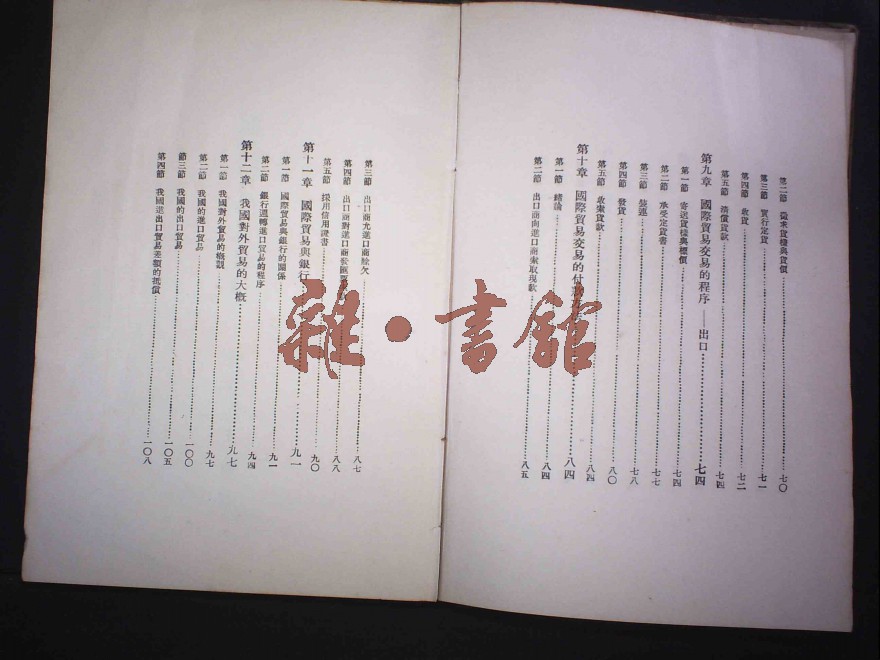 第二節 徵求貨樣與貨價……七〇
第三節 實行定貨……七一
第四節 收貨……七二
第五節 清償貨款……七四
第九章 國際貿易交易的程序——出口……七四
第一節 寄送貨樣與標價……七四
第二節 承受定貨書……七七
第三節 裝運……七八
第四節 發貨……八〇
第五節 收索貨款……八四
第十章 國際貿易交易的付款……八四
第一節 緒論……八四
第二節 出口商向進口商索取現款……八五
第三節 出口商允進口商賒欠……八七
第四節 出口商對進口商發匯票……八八
第五節 採用信用證書……九〇
第十一章 國際貿易與銀行……九一
第一節 國際貿易與銀行的關係……九一
第二節 銀行週轉進口貿易的程序……九四
第十二章 我國對外貿易的大概……九七
第一節 我國對外貿易的概觀……九七
第二節 我國的進口貿易……一〇〇
第三節 我國的出口貿易……一〇五
第四節 我國進出口貿易差額的抵償……一〇八
雜·書館